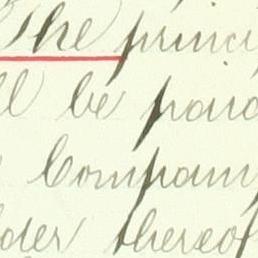 The princi
ll be paid
Company
lder thereof